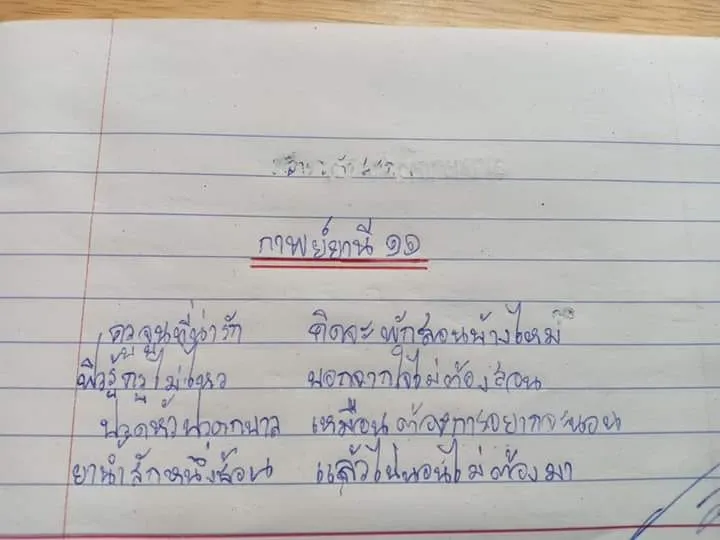 กาพย์ยานี ๑๑
ครูจูนที่น่ารัก คิดจะพักสอนบ้างไหม
หนูรู้ครูไม่ไหว บอกจากใจไม่ต้องสอน
ปวดหัวปวดกบาล เหมือนต้องการอยากจะนอน
ยานำสักหนึ่งช้อน แล้วไปนอนไม่ต้องมา